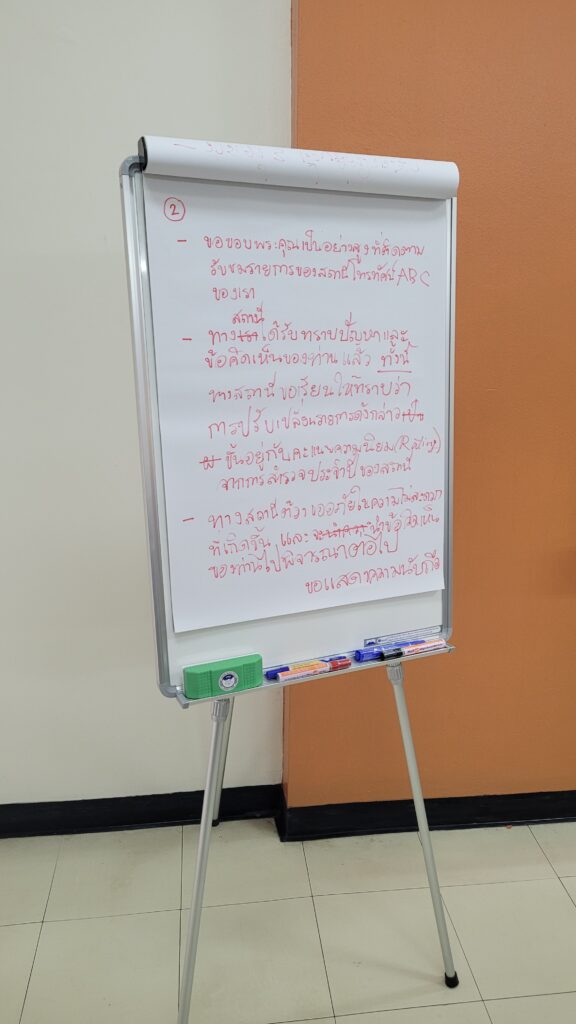 ②
- ขอขอบพระคุณเป็นอย่างสูงที่ติดตาม
รับชมรายการของสถานีโทรทัศน์ ABC
ของเรา
สถานี
- ทางเราได้รับทราบปัญหาและ
ข้อคิดเห็นของท่านแล้ว ทั้งนี้
ทางสถานีขอเรียนให้ทราบว่า
การปรับเปลี่ยนรายการดังกล่าวเป็น
ขึ้นอยู่กับคะแนนความนิยม (Rating)
จากการสำรวจประจำปีของสถานี
- ทางสถานีต้องขออภัยในความไม่สะดวก
ที่เกิดขึ้น และจะนำข้อคิดเห็น
ของท่านไปพิจารณาต่อไป
ขอแสดงความนับถือ